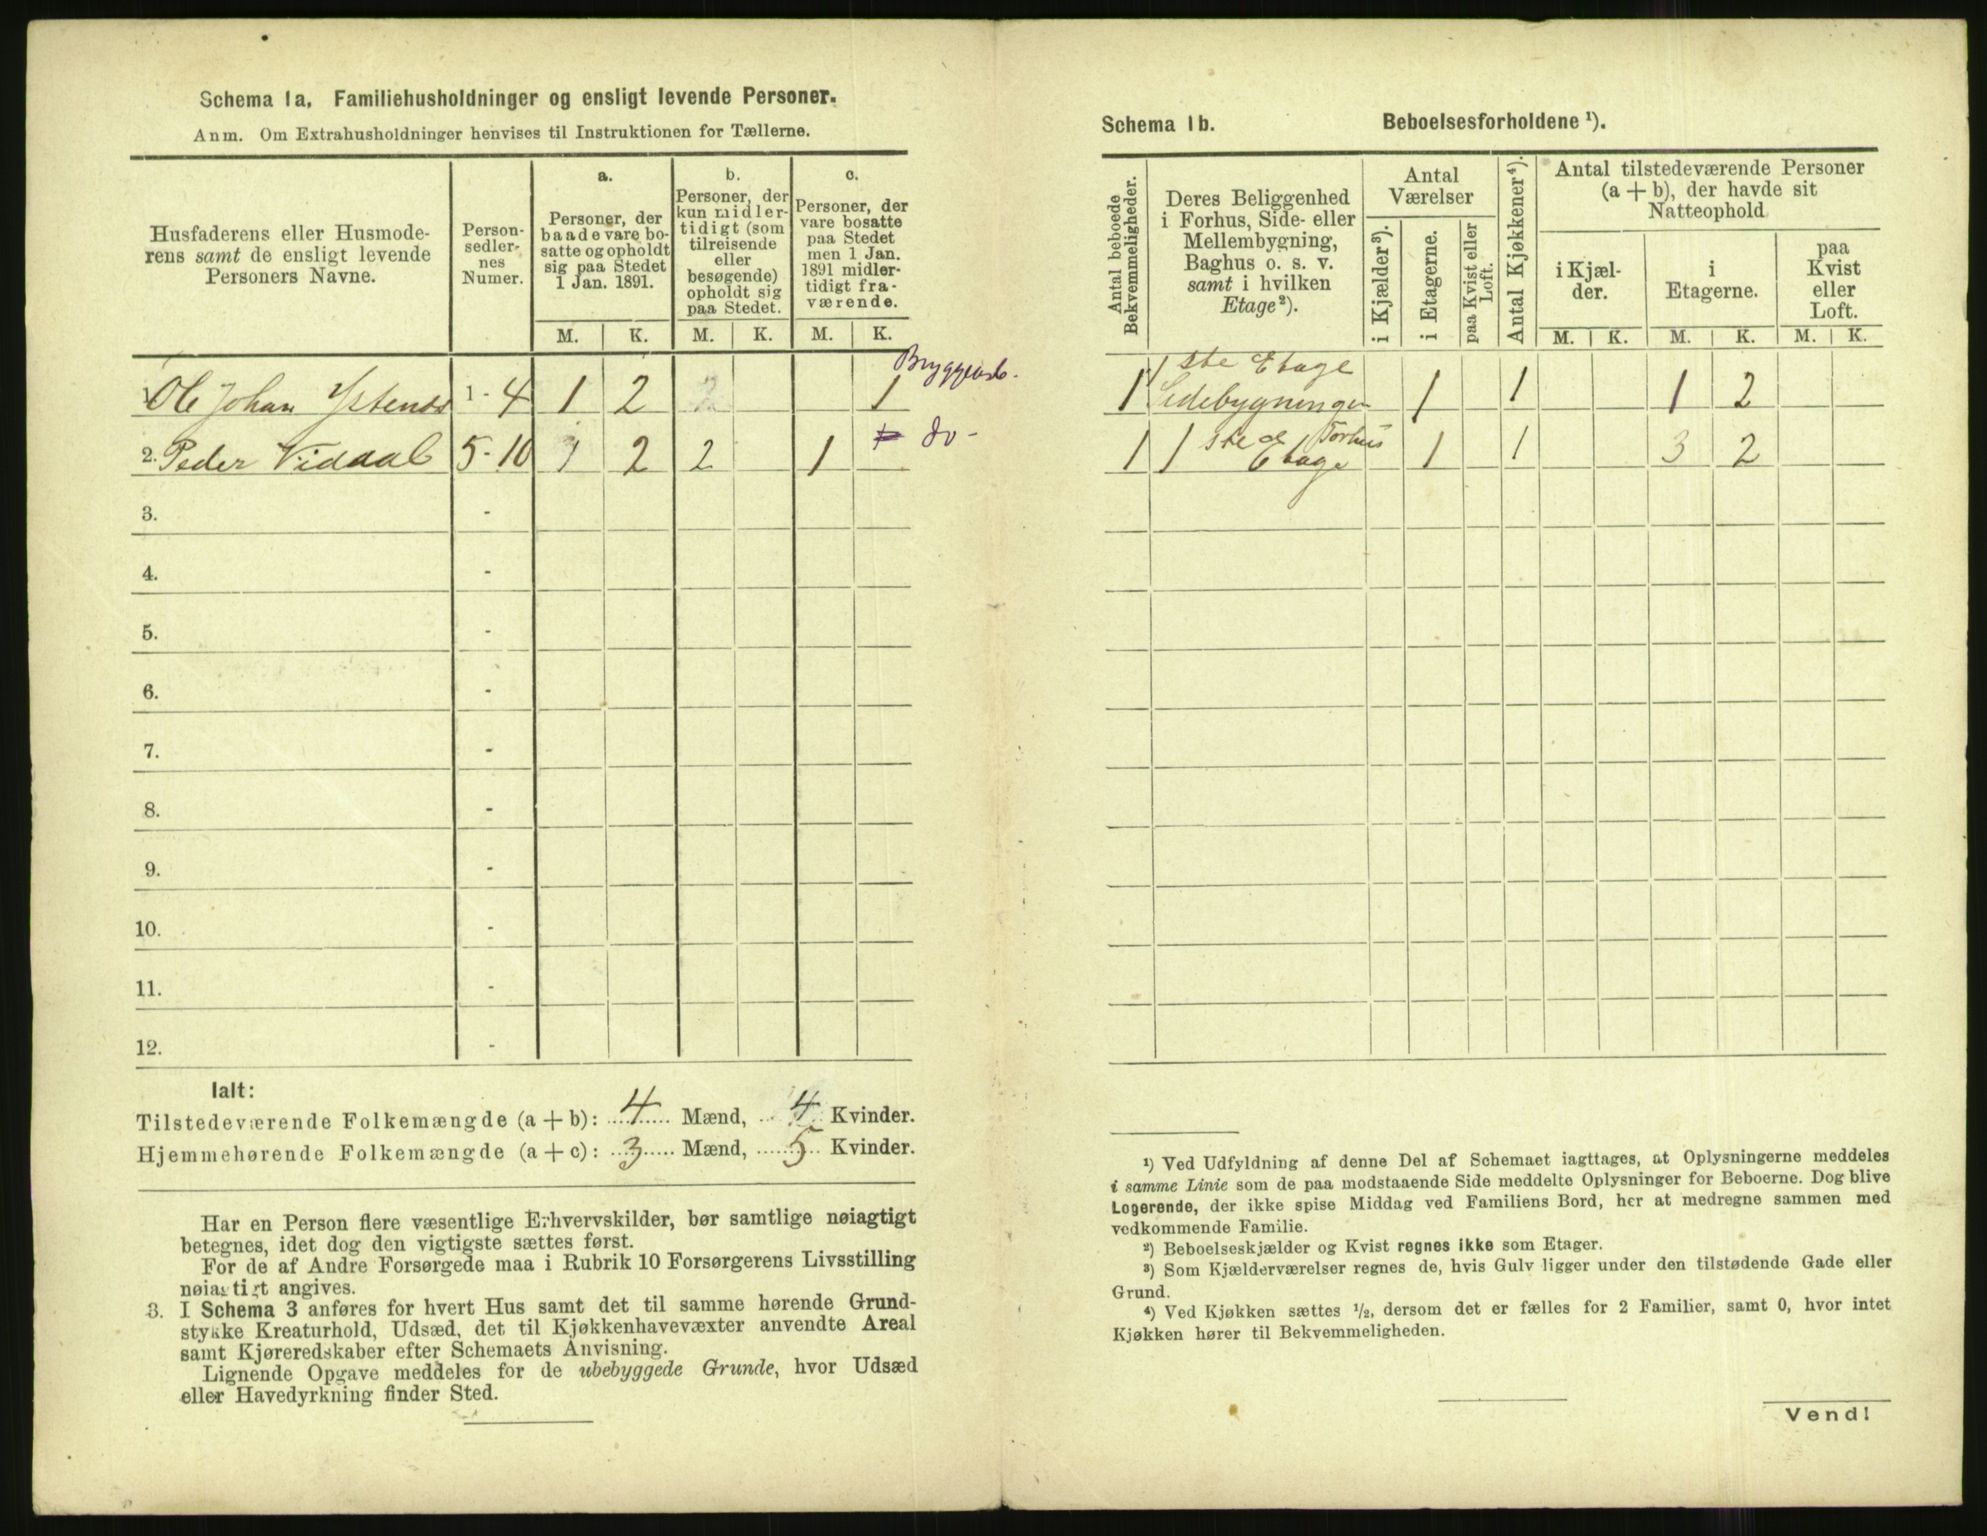 Schema 1a. Familiehusholdninger og ensligt levende Personer.
Anm. Om Extrahusholdninger henvises til Instruktionen for Tællerne.
Husfaderens eller Husmode-
rens samt de ensligt levende
Personers Navne.
Person-
sedler-
nes
Numer.
a.
Personer, der
baade vare bo-
satte og opholdt
sig paa Stedet
1 Jan. 1891.
b.
Personer, der
kun midler-
tidigt (som
tilreisende
eller
besøgende)
opholdt sig
paa Stedet.
c.
Personer, der
vare bosatte
paa Stedet
men 1 Jan.
1891 midler-
tidigt fra-
værende.
M. K. M. K. M. K.
Ole Johan 1 - 4 1 2 2 1
2. Peder Vidaal 5 - 10 1 2 2 1 do -
3. -
4. -
5. -
6. -
7. -
8. -
9. -
10. -
11. -
12. -
Ialt:
Tilstedeværende Folkemængde (a + b): 4 Mænd, 4 Kvinder.
Hjemmehørende Folkemængde (a + c): 3 Mænd, 5 Kvinder.
Har en Person flere væsentlige Erhvervskilder, bør samtlige nøiagtigt
betegnes, idet dog den vigtigste sættes først.
For de af Andre Forsørgede maa i Rubrik 10 Forsørgerens Livsstilling
nøiagtigt angives.
3. I Schema 3 anføres for hvert Hus samt det til samme hørende Grund-
stykke Kreaturhold, Udsæd, det til Kjøkkenhavevæxter anvendte Areal
samt Kjøreredskaber efter Schemaets Anvisning.
Lignende Opgave meddeles for de ubebyggede Grunde, hvor Udsæd
eller Havedyrkning finder Sted.
Schema 1b. Beboelsesforholdene ¹).
Antal beboede
Bekvemmeligheder.
Deres Beliggenhed
i Forhus, Side- eller
Mellembygning,
Baghus o. s. v.
samt i hvilken
Etage²).
Antal
Værelser
i Kjælder³).
i Etagerne.
paa Kvist eller
Loft.
Antal Kjøkkener⁴).
Antal tilstedeværende Personer
(a + b), der havde sit
Natteophold
i Kjæl-
der.
i
Etagerne.
paa
Kvist
eller
Loft.
M. K. M. K. M. K.
1 1 ste Etage
Sidebygningen 1 1 1 2
1 1 ste Forhus
Etage 1 1 3 2
¹) Ved Udfyldning af denne Del af Schemaet iagttages, at Oplysningerne meddeles
i samme Linie som de paa modstaaende Side meddelte Oplysninger for Beboerne. Dog blive
Logerende, der ikke spise Middag ved Familiens Bord, her at medregne sammen med
vedkommende Familie.
²) Beboelseskjælder og Kvist regnes ikke som Etager.
³) Som Kjælderværelser regnes de, hvis Gulv ligger under den tilstødende Gade eller
Grund.
⁴) Ved Kjøkken sættes ¹/₂, dersom det er fælles for 2 Familier, samt 0, hvor intet
Kjøkken hører til Bekvemmeligheden.
Vend!